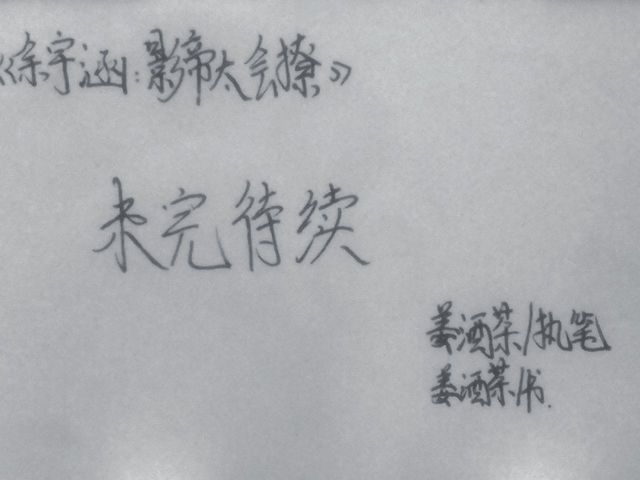 《徐宇涵:影帝太会撩》
未完待续
姜酒茶/执笔
姜酒茶/书.